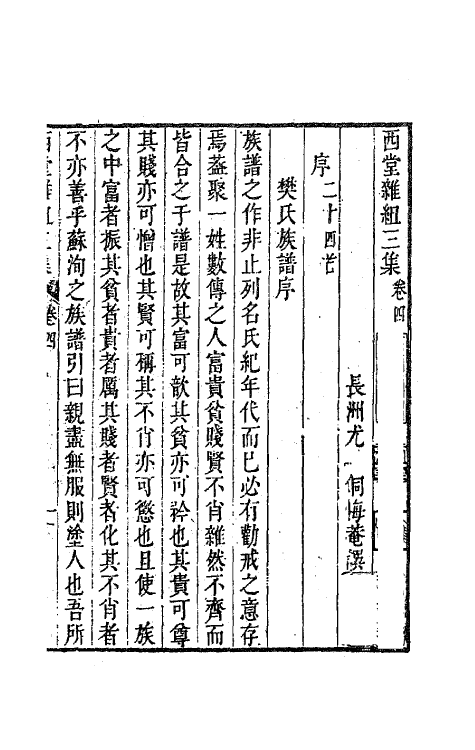 西堂雜組三集 卷四
長洲尤 侗悔菴譔
序二十四首
樊氏族譜序
族譜之作非止列名氏紀年代而已必有勸戒之意存
焉葢聚一姓數傳之人富貴貧賤賢不肖雜然不齊而
皆合之于譜是故其富可歆其貧亦可矜也其貴可尊
其賤亦可憎也其賢可稱其不肖亦可愍也且使一族
之中富者振其貧者貴者厲其賤者賢者化其不肖者
不亦善乎蘇洵之族譜引曰親盡無服則塗人也吾所
西堂雜組三集 卷四 一